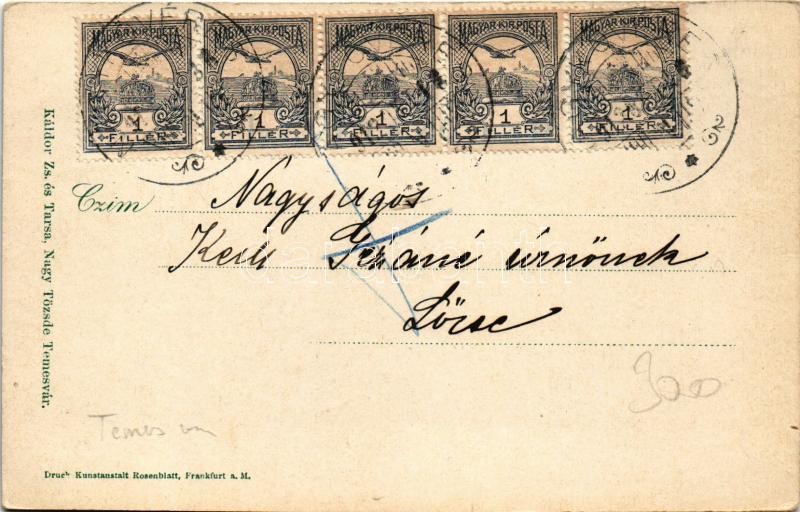 MAGYAR KIR. POSTA MAGYAR KIR. POSTA MAGYAR KIR. POSTA MAGYAR KIR. POSTA MAGYAR KIR. POSTA
1 1 1 1 1
FILLÉR FILLÉR FILLÉR FILLÉR FILLÉR
Káldor Zs. és Tarsa, Nagy Tözsde Temesvár.
Czim Nagyságos
Gézáné úrnőnek
Lőcse
300
Temes
Druck Kunstanstalt Rosenblatt, Frankfurt a. M.